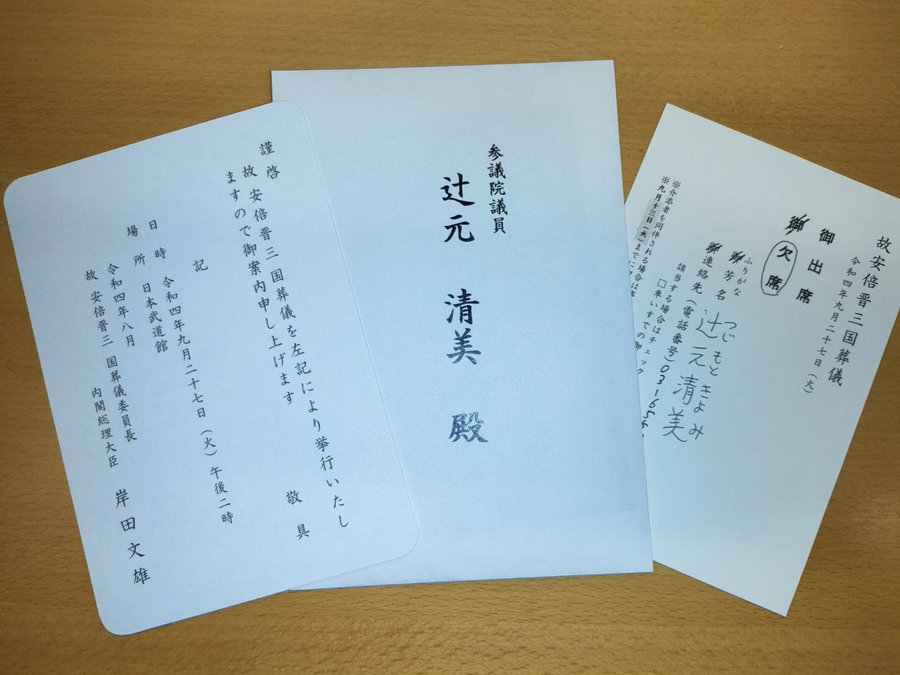 謹啓
故 安倍晋三 国葬儀を左記により挙行いたし
ますので御案内申し上げます
敬具
記
日時 令和四年九月二十七日(火)午後二時
場所 日本武道館
令和四年八月
故 安倍晋三 国葬儀委員長
内閣総理大臣 岸田文雄
参議院議員
辻元 清美 殿
故安倍晋三国葬儀
令和四年九月二十七日(火)
御出席
御欠席
ふりがな つじもときよみ
御芳名 辻元清美
御連絡先(電話番号)
該当する場合はチェック
□車いすでの御
※介添者を同伴される場合は
※九月十三日(火)までに